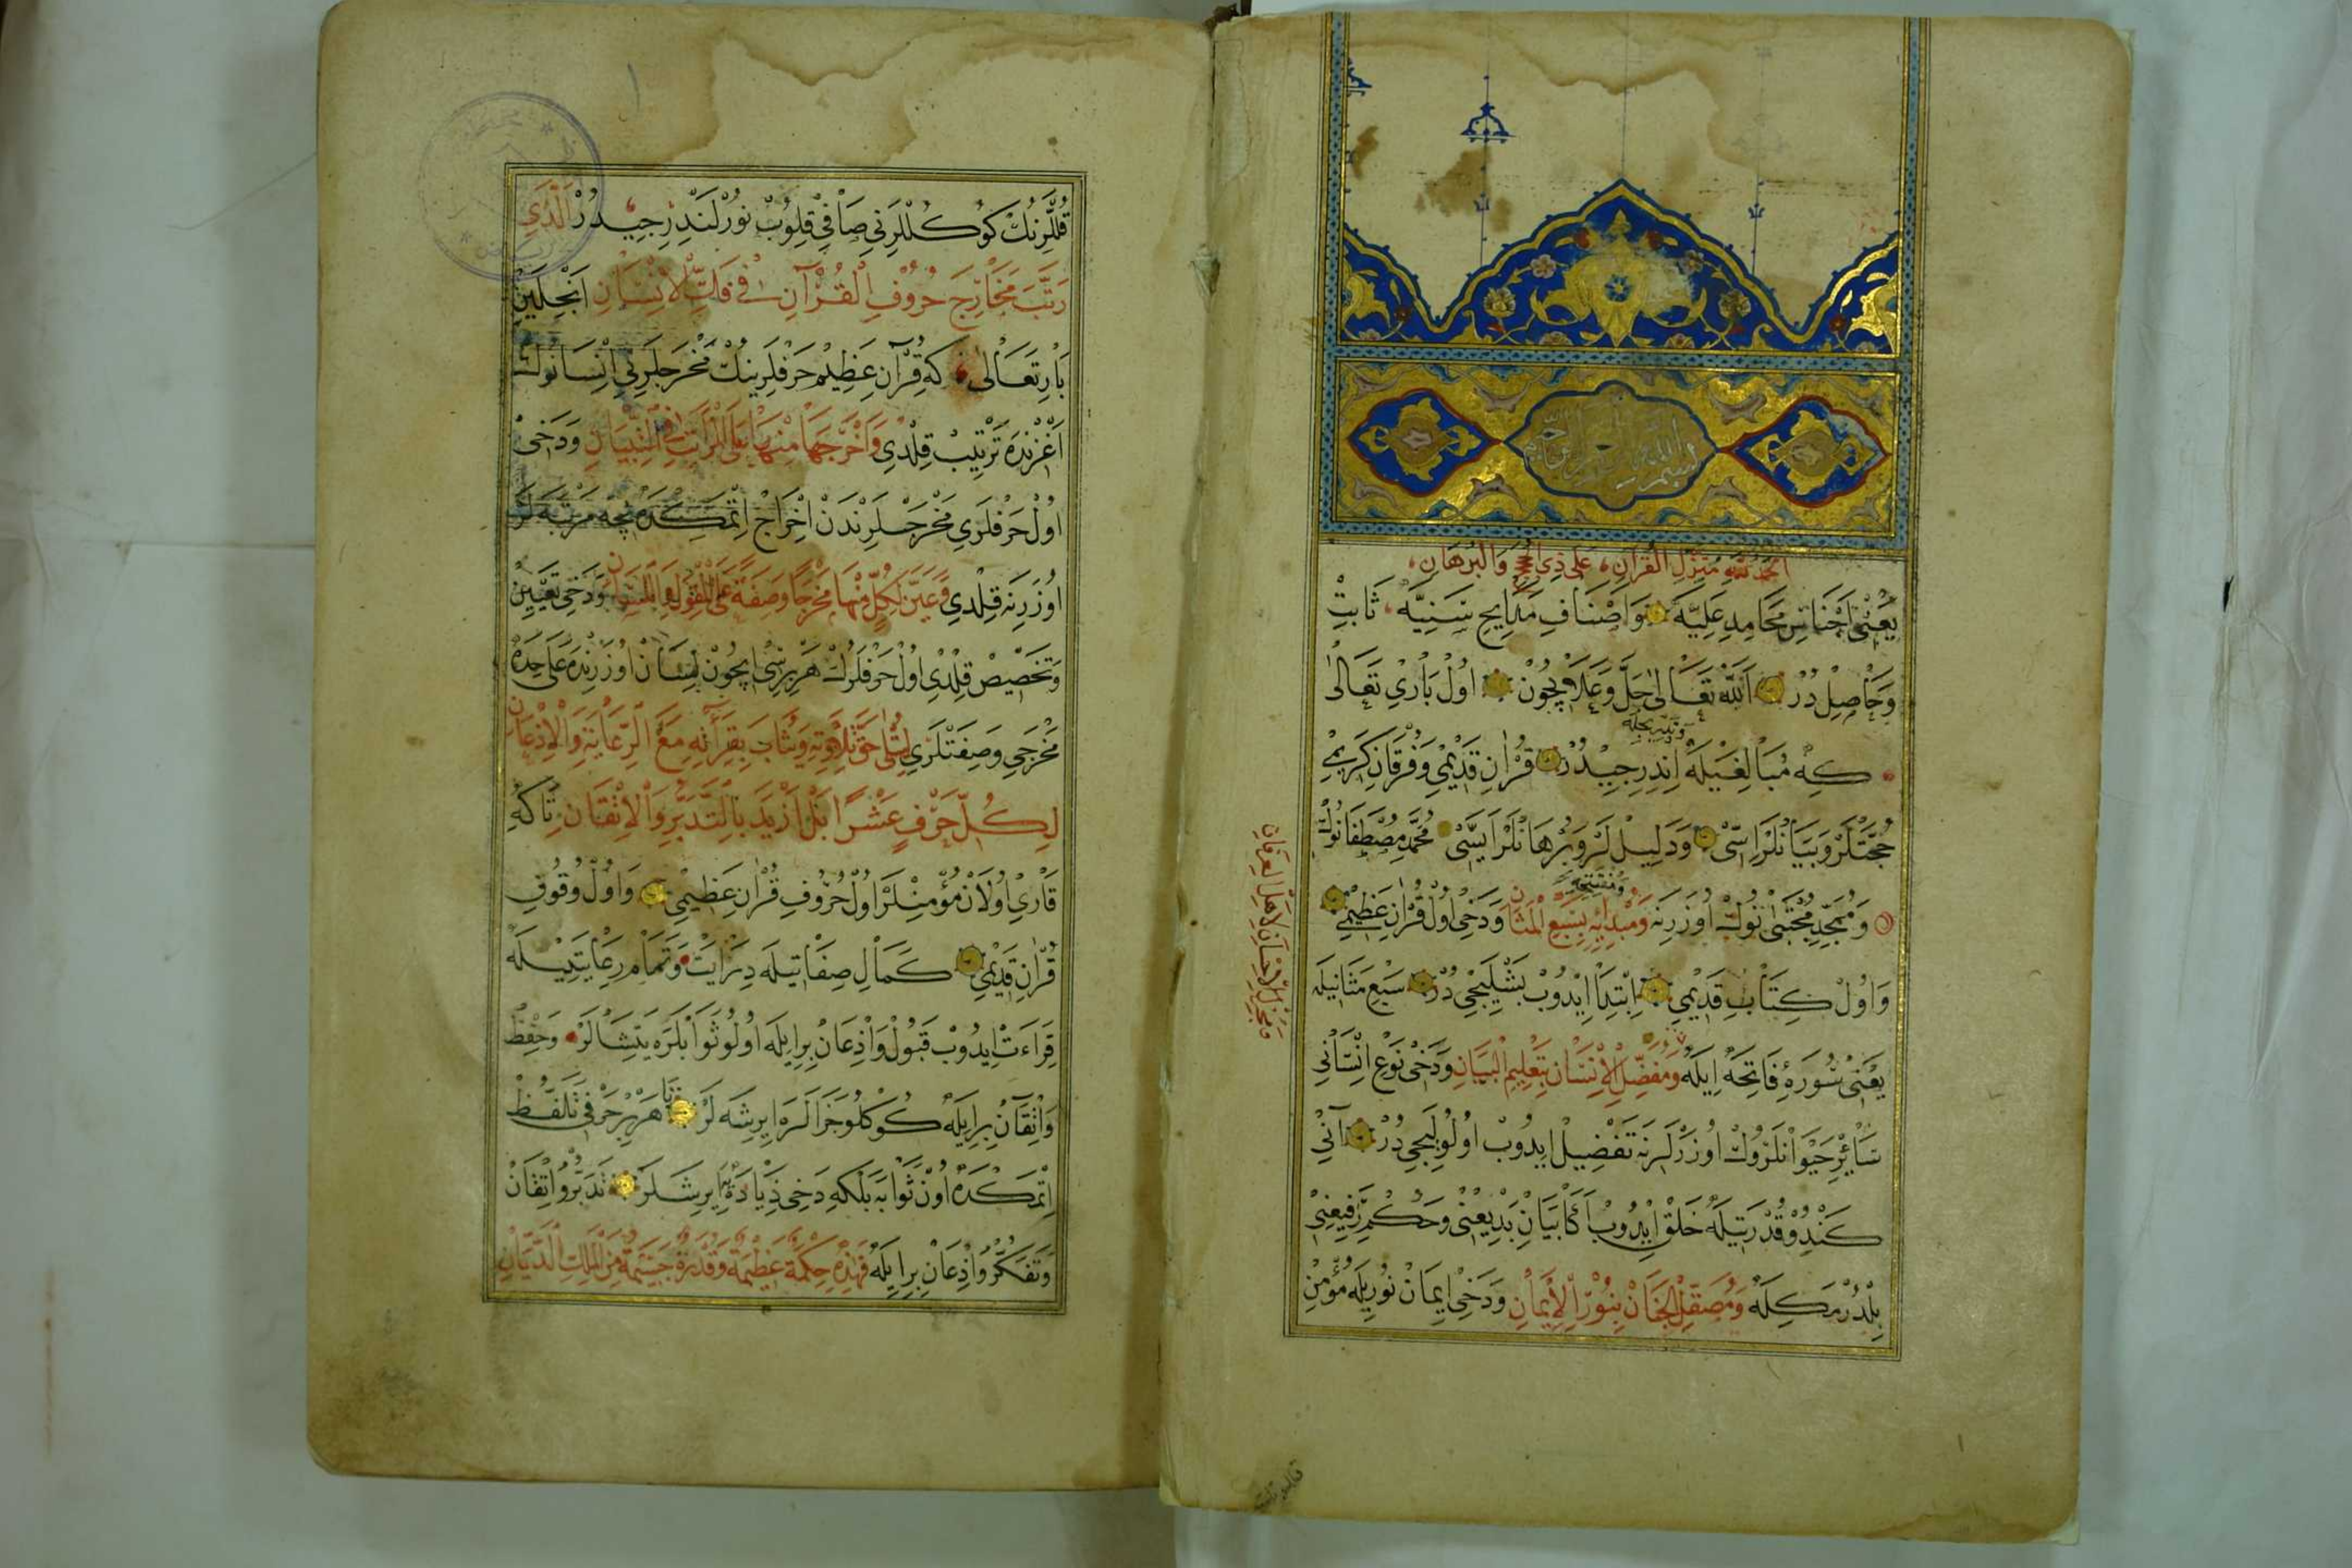 بسم الله الرحمن الرحيم
الحمد لله منزل القران، على ذي والبرهان،
يَعْنِي اَجْنَاسِ مَحَامِدِ عَلِيَّه وَاَصْنَافِ مَدَايِحِ سَنِيَّه، ثَابِتْ
وَحَاصِلْ دُرْ اَللّٰه تَعَالٰى جَلَّ وَعَلَا اِيچُونْ اُولْ بَارِي تَعَالٰى
كِه مُبَالِغَيْلَه اِنْدِرِجِيدُرْ قُرْاٰنِ قَدِيمِي وَفُرْقَانِ كَرِيمِي
حُجَّتْلَرْ وَبَيَانْلَرْ اِسِّى وَدَلِيلْ لَرْ وَبُرْهَانْلَرْ اِيسِّى مُحَمَّدِ مُصْطَفَانُوكْ
وَمُمَجَّدِ مُجْتَبٰى نُوكْ اُوزَرِنَه وَمُبْدِئِهِ بِسَبْعِ الْمَثَانِ وَدَخِي اُولْ قُرْاٰنِ عَظِيمِي
وَاُولْ كِتَابِ قَدِيمِي اِبْتِدَا اِيدُوبْ بَشْلَيِجِي دُرْ سَبْعِ مَثَانِيلَه
يَعْنِي سُورَۀ فَاتِحَه اِيلَه وَمُفَضِّلِ الْاِنْسَانِ بِتَعْلِيمِ الْبَيَانِ وَدَخِي نَوْعِ اِنْسَانِي
سَائِرِ حَيَوَانْلَرُوكْ اُوزَرْلَرِنَه تَفْضِيلْ اِيدُوبْ اُولُولَيِجِي دُرْ آنِي
كَنْدُو قُدْرَتِيلَه خَلْقْ اِيدُوبْ اَكَا بَيَانِ بَدِيعِنِي وَحُكْمِ رَفِيعِنِي
بِلْدُرْمَكِلَه وَمُصَقِّلِ الْجَنَانِ بِنُورِ الْاِيمَانِ وَدَخِي اِيمَانْ نُورِيلَه مُؤْمِنْ
قُلْلَرِنُكْ كَوكُلْلَرِنِي صَافِي قِلُوبْ نُورْلَنْدِرِجِيدُرْ اَلَّذِي
رَتَّبَ مَخَارِجَ حُرُوفِ الْقُرْآنِ فِي الْاِنْسَانِ اَنْجِلَيِنْ
بَارِي تَعَالٰى كِه قُرْآنِ عَظِيمْ حَرْفْلَرِينُكْ مَخْرَجْلَرِنِي اِنْسَانُوكْ
اَغْزِنْدَه تَرْتِيبْ قِلْدِي وَاَخْرَجَهَا مِنْهَا وَدَخِي
اُولْ حَرْفْلَرِي مَخْرَجْلَرِنْدَنْ اِخْرَاجْ اِتْمَكْدَه نِچَه مَرْتَبَه لَرْ
اُوزَرِنَه قِلْدِي وَعَيَّنَ لِكُلٍّ مِنْهَا مَخْرَجًا وَصِفَةً وَدَخِي تَعْيِينْ
وَتَخْصِيصْ قِلْدِي اُولْ حَرْفْلَرُكْ هَرْ بِرِسِي اِيچُونْ لِسَانْ اُوزَرِنْدَه عَلٰى حِدَه
مَخْرَجِي وَصِفَتْلَرِي لِيُتْلٰى حَقَّ تِلَاوَتِهِ وَيُثَابَ بِقِرَائَتِهِ مَعَ الرِّعَايَةِ وَالْاِذْعَانِ
لِكُلِّ حَرْفٍ عَشْرًا بَلْ اَزْيَدَ بِالتَّدَبُّرِ وَالْاِتْقَانِ تَا كَه
قَارِي اُولَانْ مُؤْمِنْلَرْ اُولْ حُرُوفِ قُرْاٰنِ عَظِيمِي وَاُولْ وُقُوفِ
قُرْاٰنِ قَدِيمِي كَمَالِ صِفَاتِيلَه دِرَايَتْ وَتَمَامِ رِعَايَتِيلَه
قِرَاءَتْ اِيدُوبْ قَبُولْ وَاِذْعَانْ بِرْ اِيلَه اُولُو ثَوَابْلَرَه يَتِشَالَرْ وَحِفْظْ
وَاِتْقَانْ بِرْ اِيلَه كُوكْلُو جَزَالَرَه اِيرِشَه لَرْ تَا هَرْ بِرْ حَرْفِي تَلَفُّظْ
اِتْمَكْدَه اُونْ ثَوَابَه بَلْكِه دَخِي زِيَادَه يَه اِيرِشَلَرْ تَدَبُّرْ وُ اِتْقَانْ
وَتَفَكُّرْ وُ اِذْعَانْ بِرْ اِيلَه فَهٰذِهِ حِكْمَةٌ عَظِيمَةٌ وَقُدْرَةٌ جَسِيمَةٌ مِنَ الْمَلِكِ الدَّيَّانِ